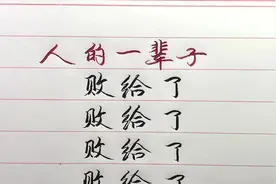 人的一辈子
败给了
败给了
败给了
败给了